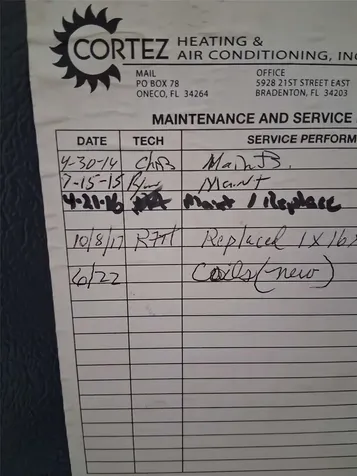 CORTEZ HEATING &
AIR CONDITIONING, INC
MAIL OFFICE
PO BOX 78 5928 21ST STREET EAST
ONECO, FL 34264 BRADENTON, FL 34203
MAINTENANCE AND SERVICE
DATE TECH SERVICE PERFORM
4-30-14
7-15-15 Maint
4-21-16 Maint / Replace
10/8/17 Replaced 1 X 16 X
6/22 Coils (new)